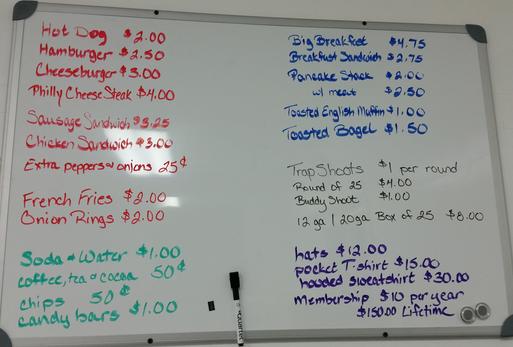 Hot Dog $2.00
Hamburger $2.50
Cheeseburger $3.00
Philly Cheese Steak $4.00
Sausage Sandwich $3.25
Chicken Sandwich $3.00
Extra peppers or onions 25¢
French Fries $2.00
Onion Rings $2.00
Soda & Water $1.00
coffee, tea & cocoa 50¢
chips 50¢
candy bars $1.00
Big Breakfast $4.75
Breakfast Sandwich $2.75
Pancake Stack $2.00
w/ meat $2.50
Toasted English Muffin $1.00
Toasted Bagel $1.50
Trap Shoots $1 per round
Round of 25 $4.00
Buddy Shoot $1.00
12 ga / 20ga Box of 25 $8.00
hats $12.00
pocket T-shirt $15.00
hooded sweatshirt $30.00
Membership $10 per year
$150.00 Lifetime